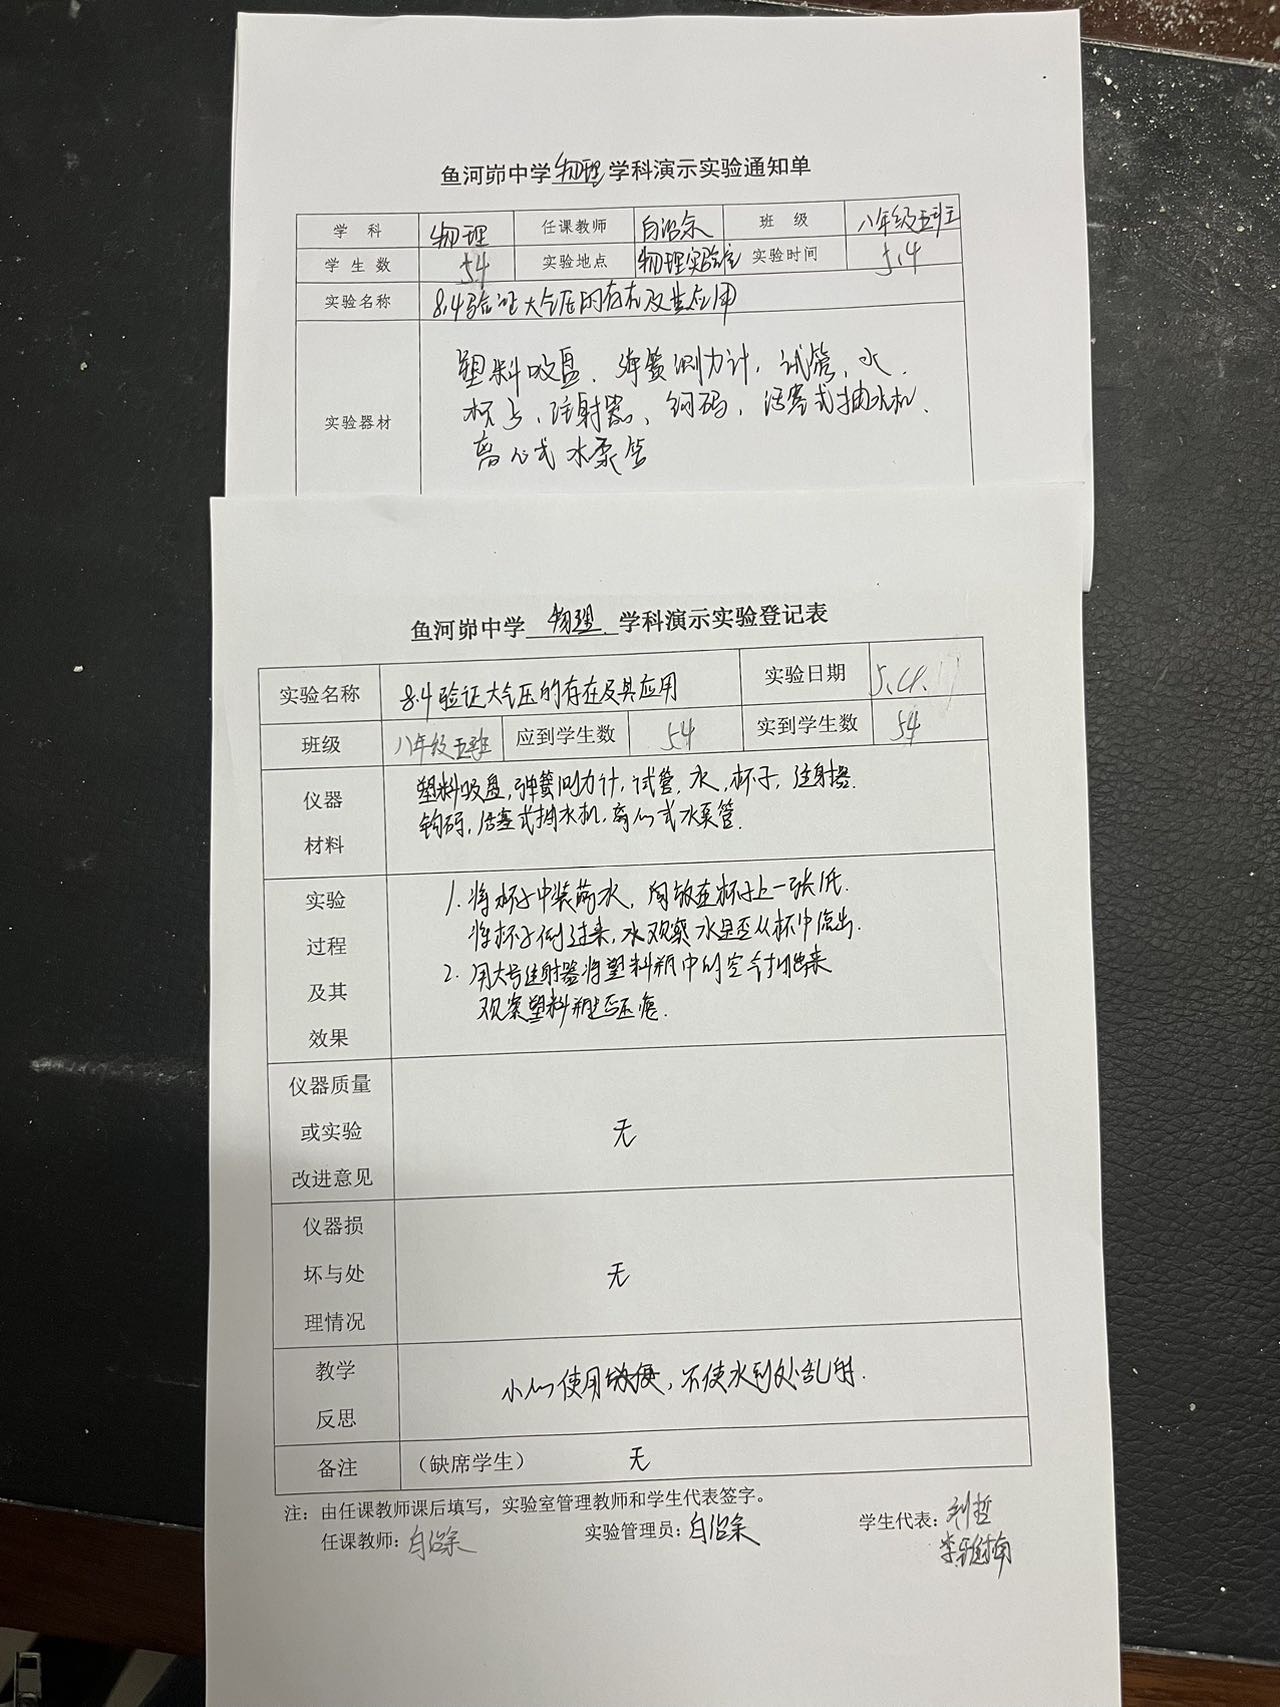 鱼河峁中学物理学科演示实验通知单
学科 物理 任课教师 班级 八年级五班
学生数 54 实验地点 物理实验室 实验时间 5.4
实验名称 8.4验证大气压的存在及其应用
实验器材
塑料吸盘、弹簧测力计,试管、水、
杯子、注射器、钩码,活塞式抽水机、
离心式水泵管
鱼河峁中学 物理 学科演示实验登记表
实验名称 8.4验证大气压的存在及其应用 实验日期 5.4.
班级 八年级五班 应到学生数 54 实到学生数 54
仪器
材料
塑料吸盘,弹簧测力计,试管,水,杯子,注射器.
钩码,活塞式抽水机,离心式水泵管.
实验
过程
及其
效果
1.将杯子中装满水,放在杯子上一张纸.
将杯子倒过来,观察水是否从杯中流出.
2.用大号注射器将塑料瓶中的空气抽出来
观察塑料瓶是否压瘪.
仪器质量
或实验
改进意见
无
仪器损
坏与处
理情况
无
教学
反思
小心使用,不使水到处乱射.
备注 (缺席学生) 无
注:由任课教师课后填写,实验室管理教师和学生代表签字。
任课教师: 实验管理员: 学生代表:刘哲